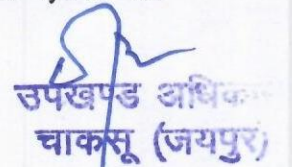 उपखण्ड अधिक
चाकसू (जयपुर)